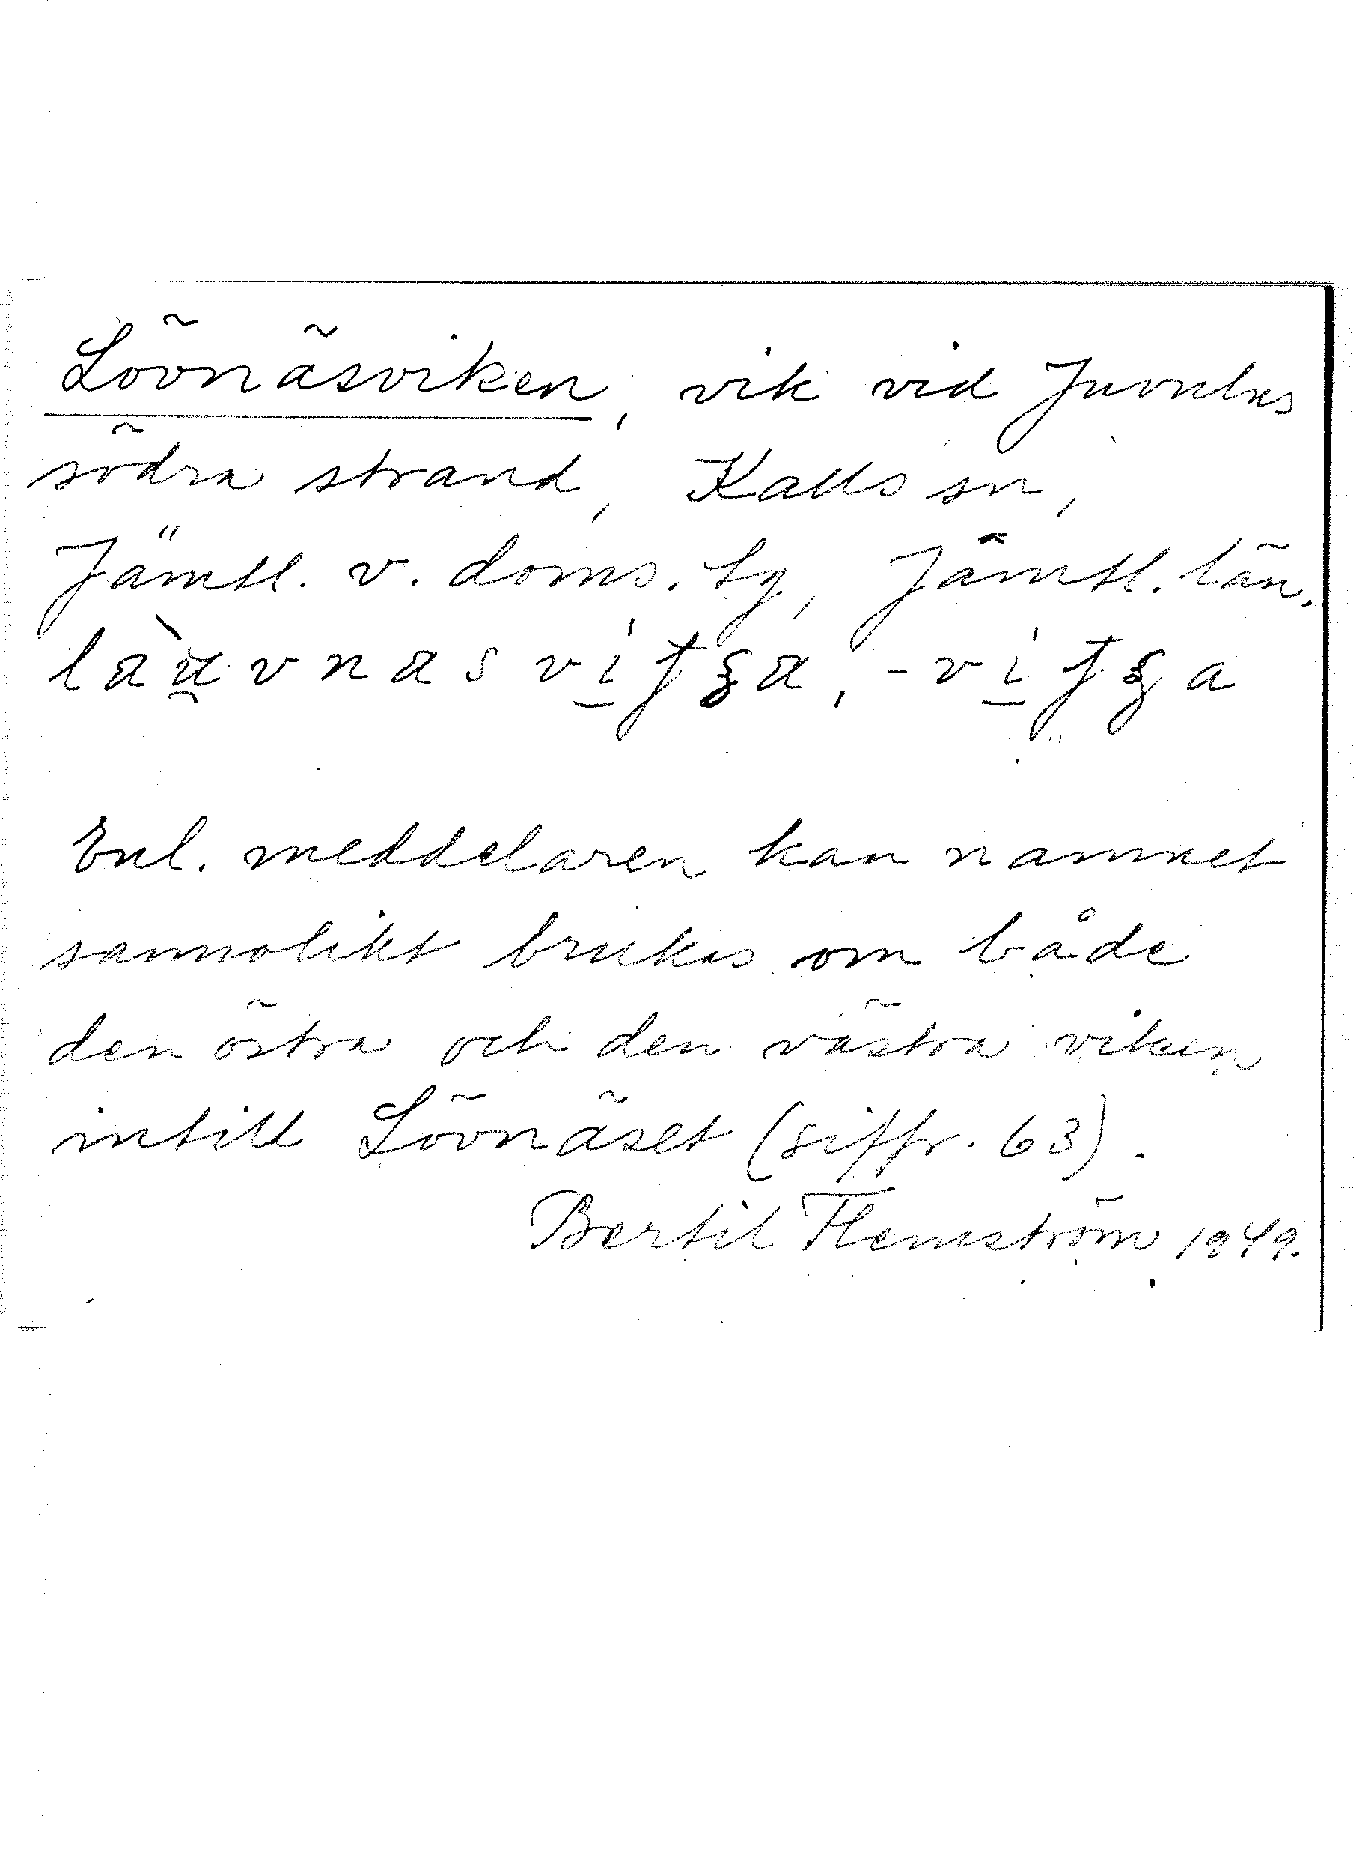 Lövnäsviken, vik vid Juvulns
södra strand, Kalls sn,
Jämtl. v. doms. tg, Jämtl. län.
Enl. meddelaren kan namnet
sannolikt brukas om både
den östra och den västra viken
intill Lövnäset (siffr. 63).
Bertil Flemström 1949.